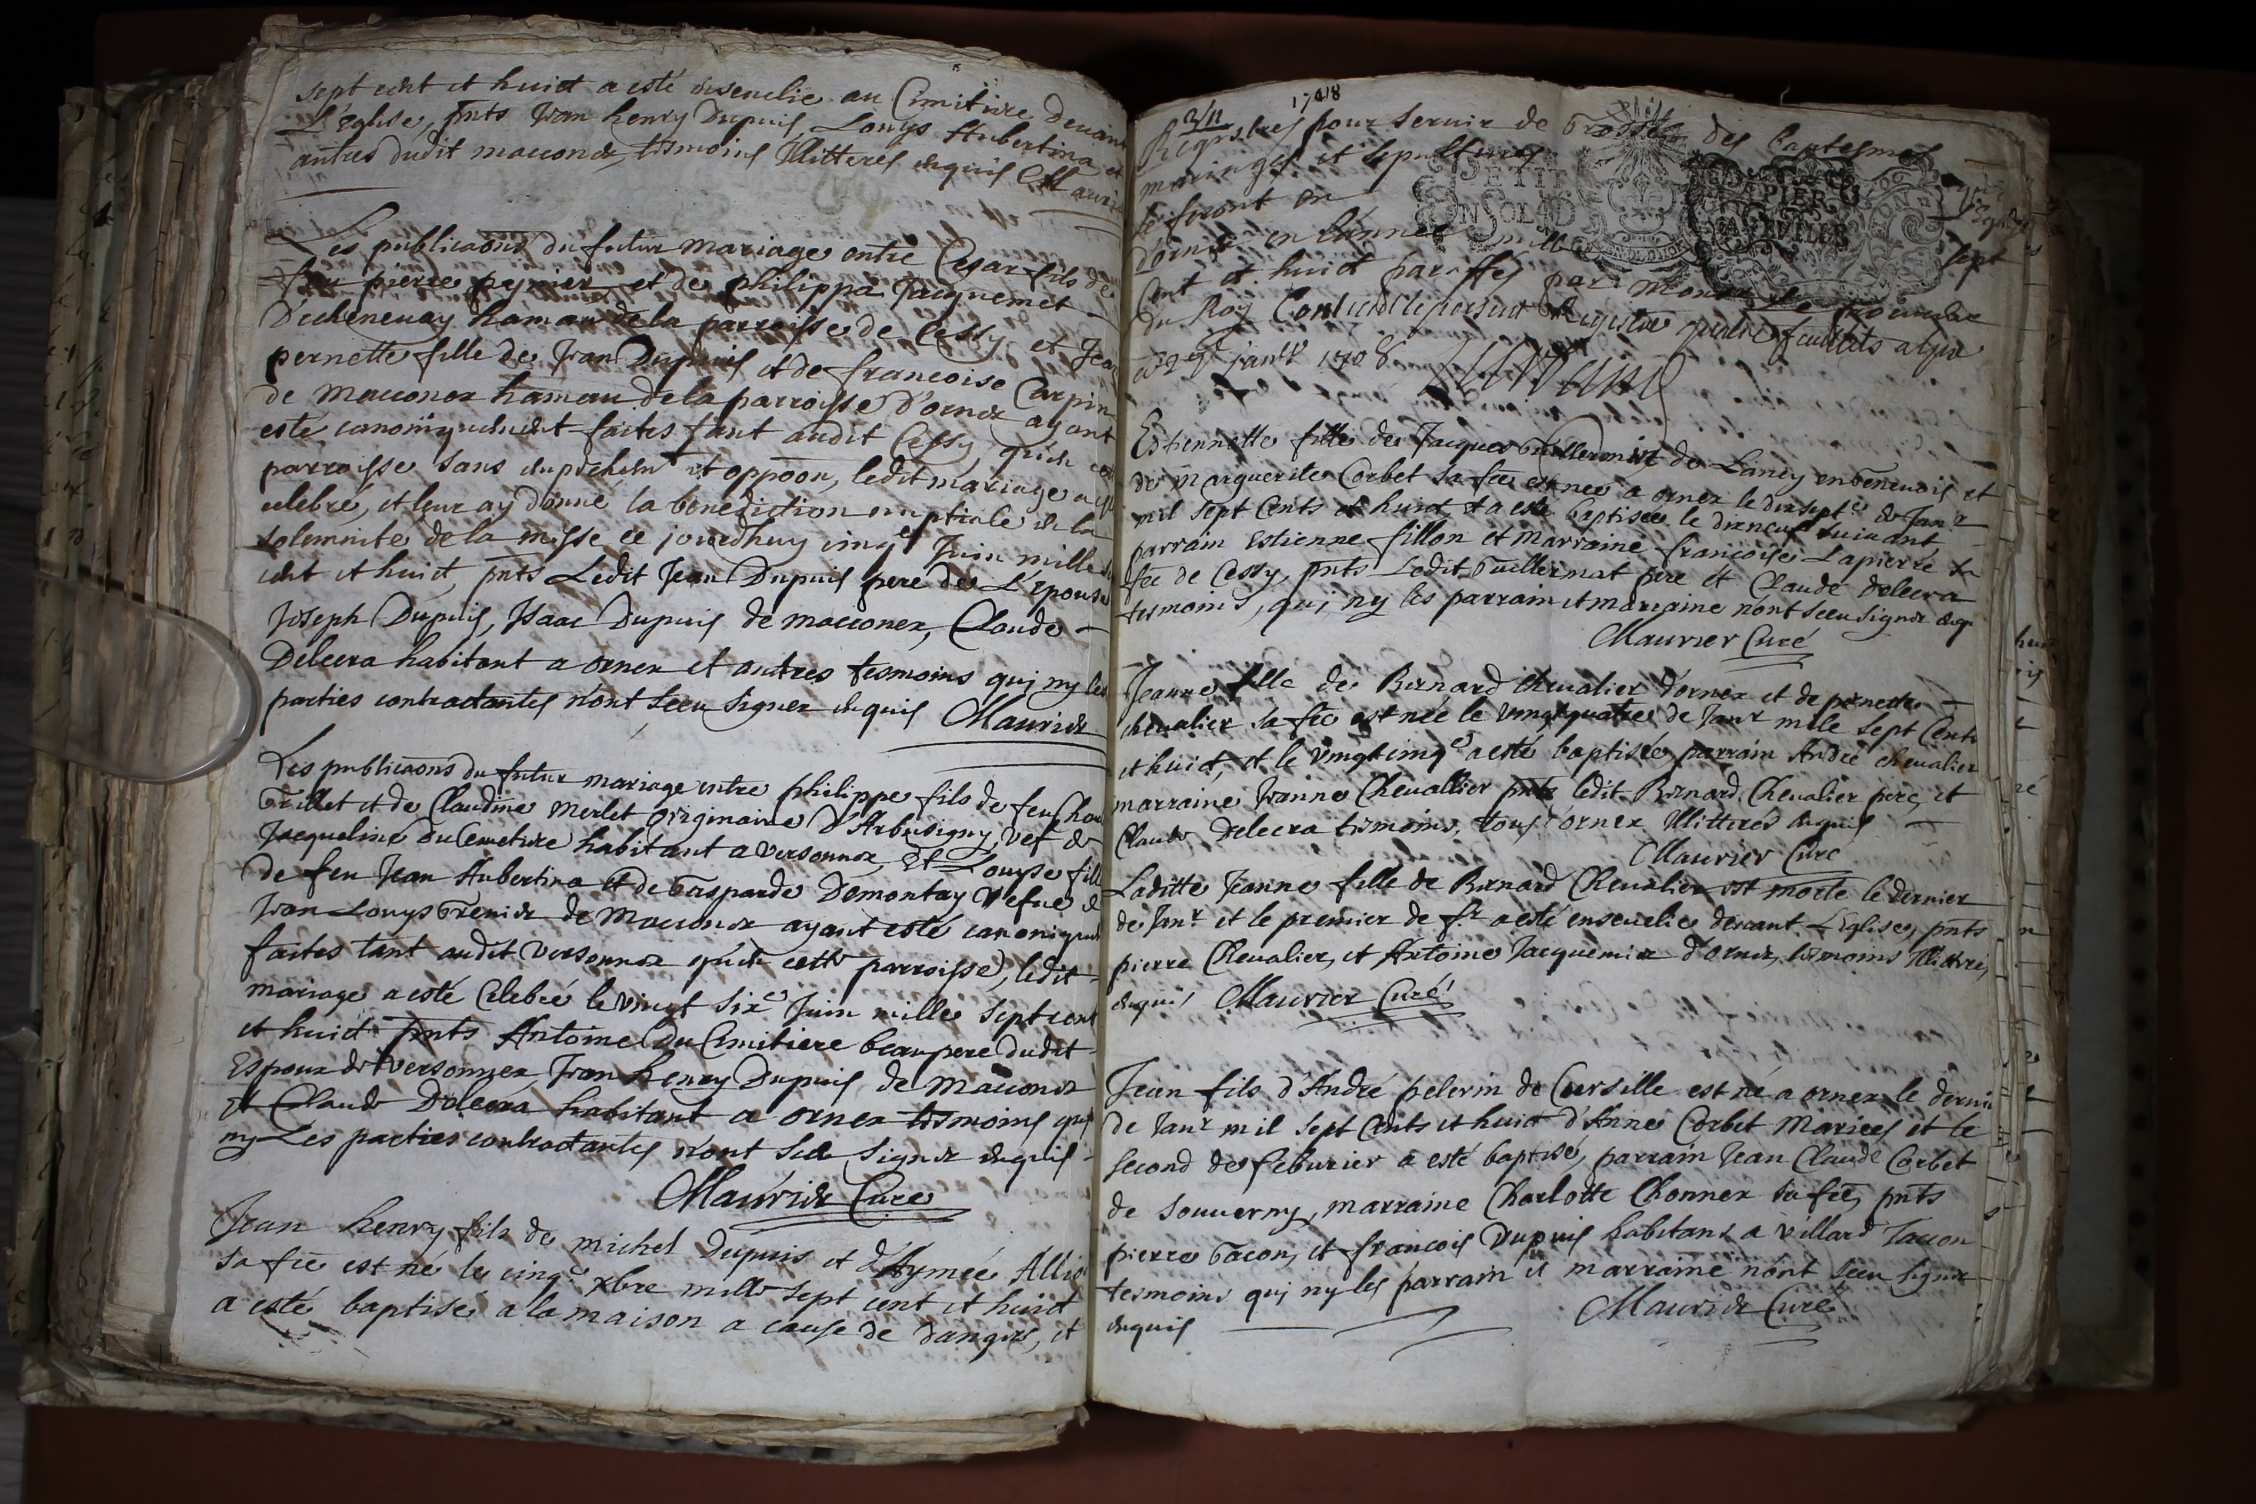 sept cent et huict a esté ensevelie au Cimitiere devant
L'Eglise, pnts Jean henry Dupuis, Louys Aubertina et
autres dudit macconex, tesmoins Illitteres enquis Maurier
Les publicaons du futur mariage entre Cesar fils de
feu pierre premier et de philippa Jacquemet
D'echenevay hameau de la parroisse de Cessy et Jea
pernette fille de Jean Dupuis et de francoise Carpin
de macconex hameau de la parroisse d'ornex ayant
esté canoniquement faites tant audit Cessy qu'en cette
parroisse sans empechemt et oppoon, ledit mariage a esté
celebré, et leur ay donné la benediction nuptiale en la
solemnite de la messe ce jourdhuy cinqe Juin mille
cent et huict, pnts Ledit Jean Dupuis pere de L'Epouse
Joseph Dupuis, Isaac Dupuis de macconex, Claude
Delecra habitant a ornex et autres tesmoins qui ny les
parties contractantes n'ont sceu signer enquis Maurier
Les publicaons du futur mariage entre philippe fils de feu Cha
Grillet et de Claudine merlet originaire D'Arbusigny, vef de
Jacqueline Du Cemetiere habitant a versonnex, Et Louyse fille
de feu Jean Aubertina et de Gasparde Demontay vefue de
Jean Louys Grenier de Macconex ayant esté canoniquem
faites tant audit versonnex qu'en cette parroisse, ledit
mariage a esté Celebré le vingt sixe Juin mille sept cent
et huict pnts Antoine Du Cimitiere beaupere dudit
Espoux de versonnex Jean henry Dupuis de macconex
et Claude Delecra habitant a ornex tesmoins qui
ny Les parties contractantes n'ont sceu signer enquis
Maurier Curé
Jean henry fils de michel Dupuis et d'Aymée Allio
sa fee est né le cinqe xbre mille sept cent et huict
a esté baptisé a la maison a cause de danger, et
2/11 1708
Regestres pour servir de Grosse des baptesmes
mariages et sepultures
se feront en
D'ornex en l'année mille sept
Cent et huict paraffés par Monsr le procureur
du Roy Contient le present Registre quatre feuillets a gex
ce 29e janvr 1708
PETIT EN SOL 4 D
PAPIER
Estiennette fille de Jacques Guillermin de Lancy en Genevois et
de marguerite Corbet sa fee est née a ornex le dixsepte de Janr
mil sept Cents et huict et a esté baptisée le dixneuf suivant
parrain Estienne fillon et Marraine francoise Lapierre sa
fee de Cessy, pnts Ledit Guillermat pere et Claude Delecra
tesmoins, qui ny les parrain et marraine n'ont sceu signer enqs
Maurier Curé
Jeanne fille de Bernard chevalier d'ornex et de pernette
chevalier sa fee est née le vingtquatre de Janr mile sept Cents
et huict, et le vingtcinqe a esté baptisée, parrain André chevalier
marraine Jeanne Chevallier pnts ledit Bernard Chevalier pere, et
Claude Delecra tesmoins, tous d'ornex Illitteres enquis
Maurier Curé
Laditte Jeanne fille de Bernard Chevalier est morte le dernier
de Janr et le premier de fr a esté ensevelie devant L'Eglise, pnts
pierre Chevalier, et Antoine Jacquemier d'ornex, tesmoins Illiteré,
enquis Maurier Curé
Jean fils d'André pelerin de Cursille est né a ornex le dernier
de Janr mil sept Cents et huict d'Anne Corbet Mariees et le
second de feburier a esté baptisé, parrain Jean Claude Corbet
de Souverny, marraine Charlotte Chonnex sa fee, pnts
pierre Gacon, et francois Dupuis habitans a villard Tacon
tesmoins qui ny les parrain et marraine n'ont sceu signer
enquis Maurier Curé